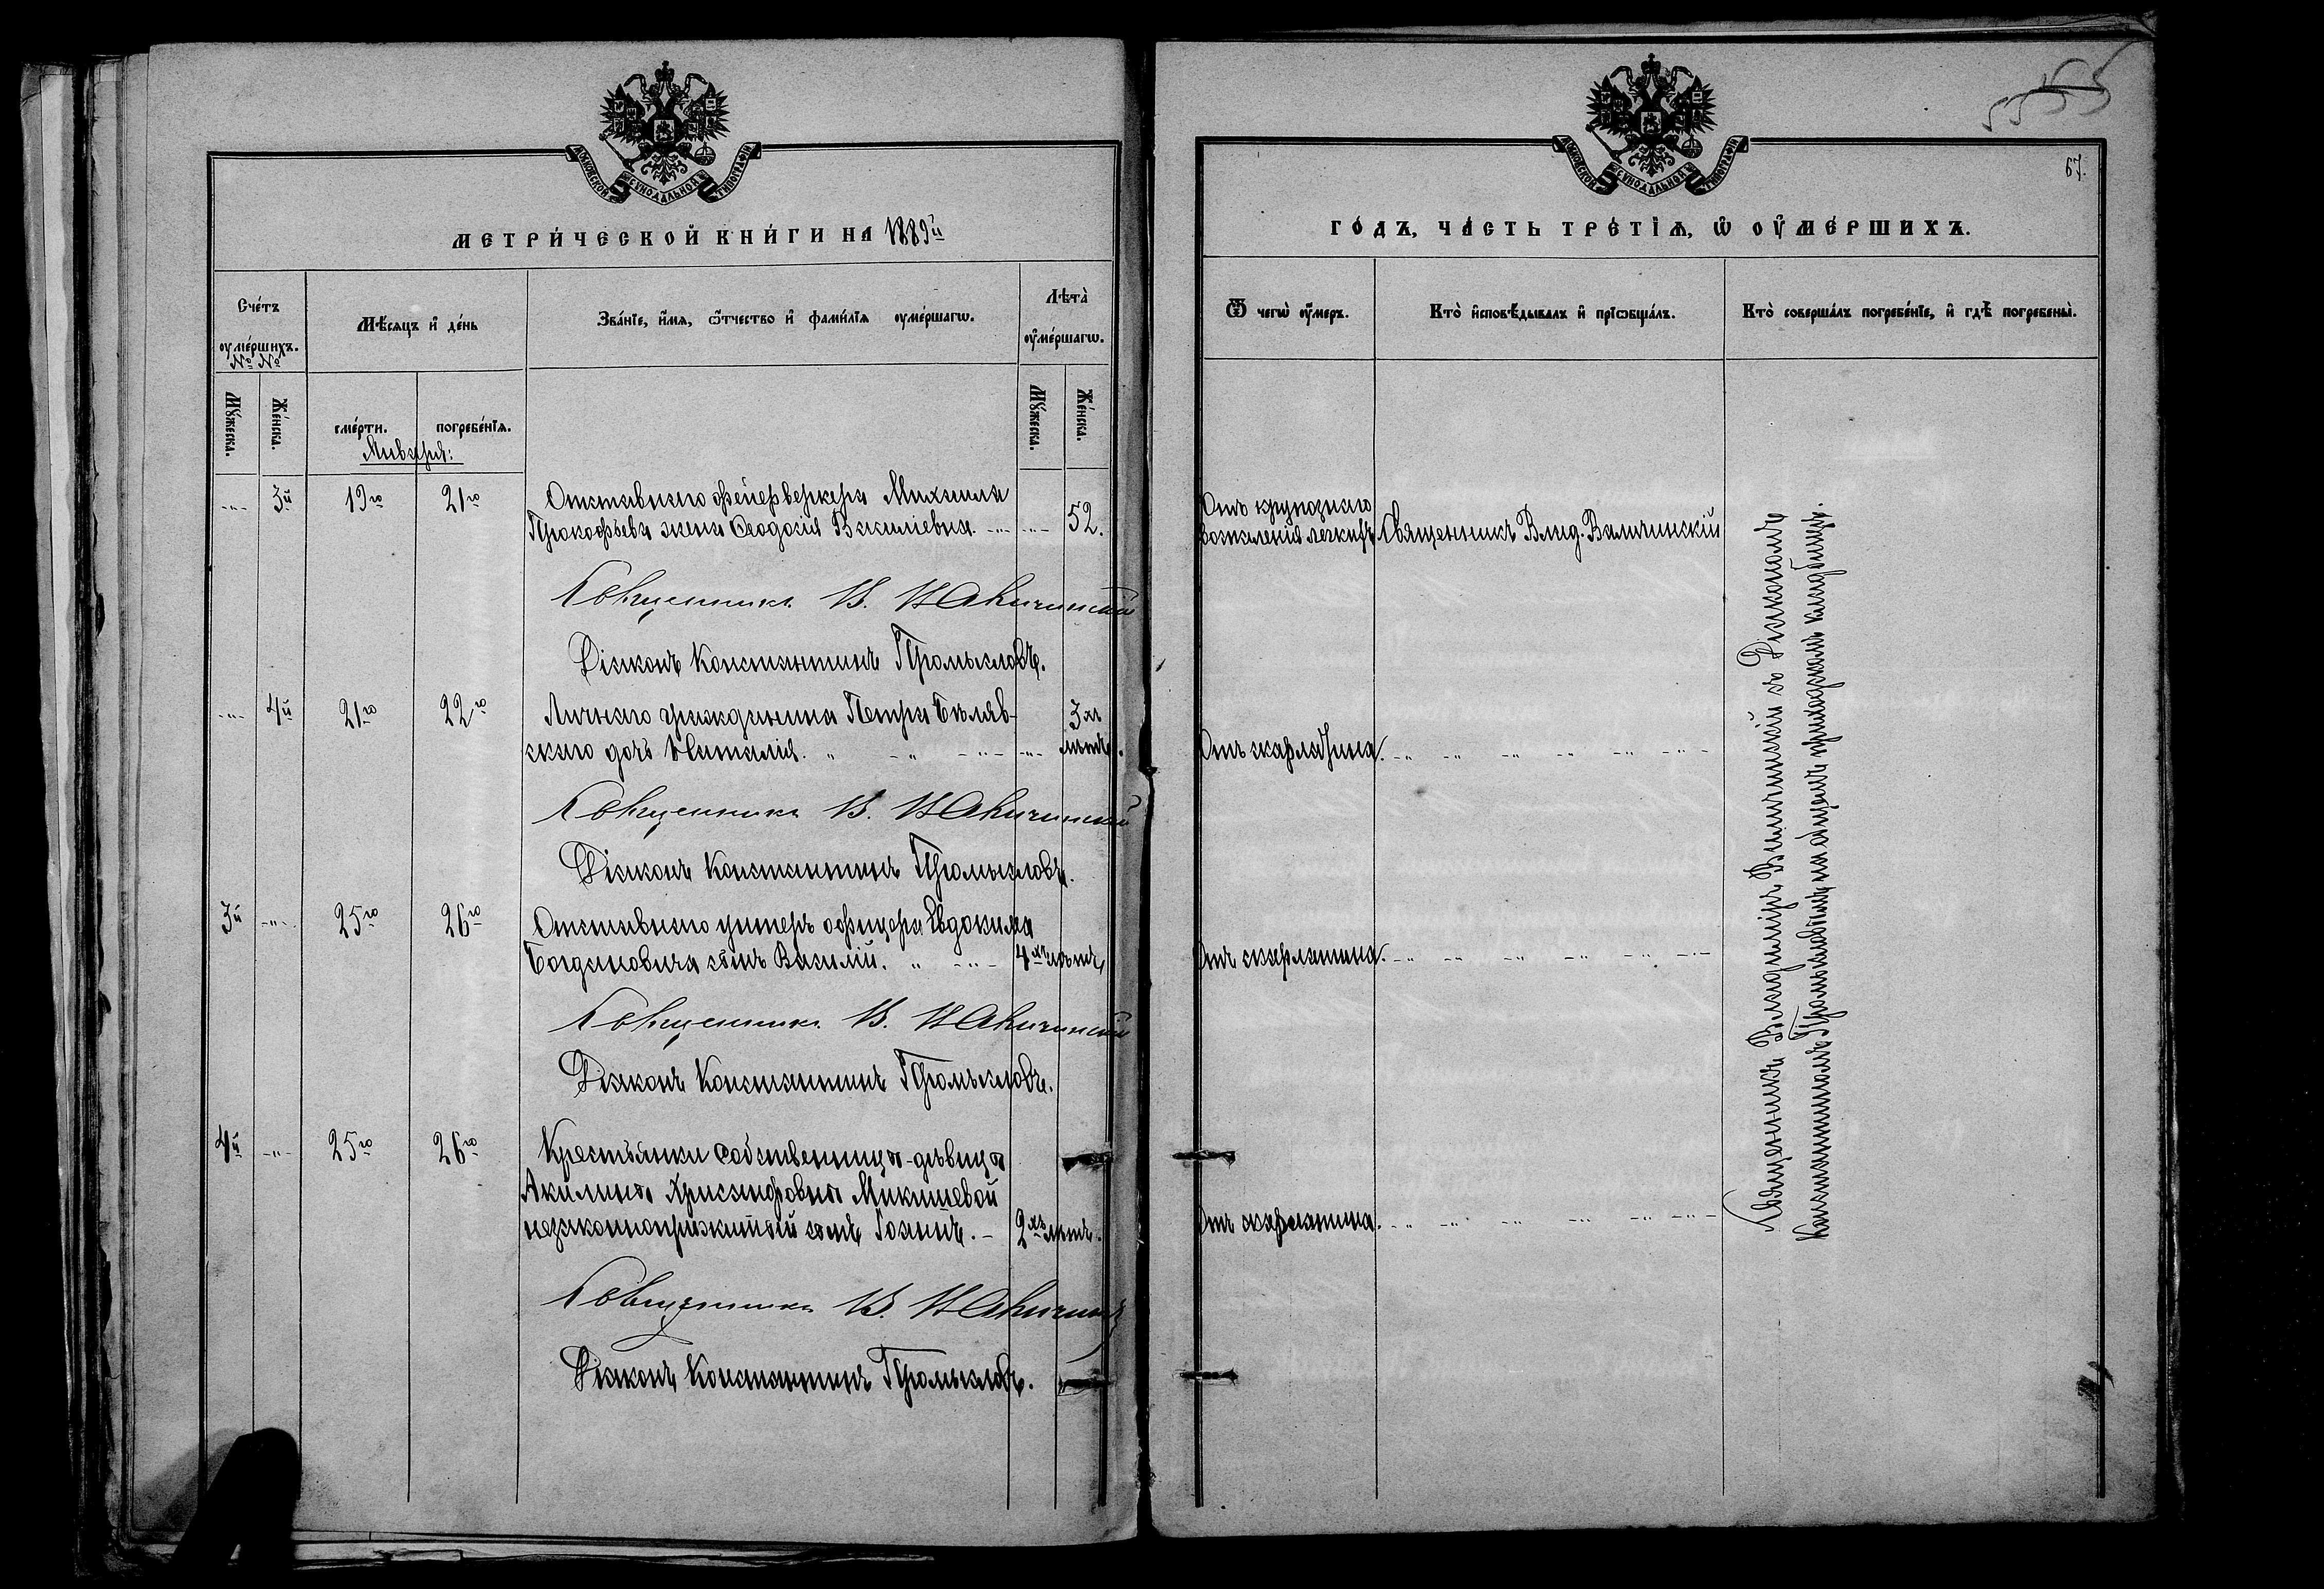 МОСКОВСКОЙ СѴНОДАЛЬНОЙ ТИПОГРАФІИ
МЕТРИ́ЧЕСКОЙ КНИ́ГИ НА 1889й
Сче́тъ ᲂу҆ме́ршихъ.
№ №
Мꙋ́жеска.
Же́нска.
Мѣ́сяцъ и҆ де́нь
сме́рти.
погребе́нїѧ.
Января:
Зва́нїе, и҆́мѧ, ѻ҆́тчество и҆ фами́лїѧ ᲂу҆ме́ршагѡ.
Лѣта̀ ᲂу҆ме́ршагѡ.
Мꙋ́жеска.
Же́нска.
-"- 3й 19го 21го Отставнаго фейерверкера Михаила
Прокофьева жена Ѳеодосія Василіевна. -"- -"- 52.
Священникъ В. Величинскій
Діаконъ Константинъ Промысловъ.
-"- 4й 21го 22го Личнаго гражданина Петра Бѣляв-
скаго дочь Наталія. " -"- -"- -"- 3хъ лѣтъ.
Священникъ В. Величинскій
Діаконъ Константинъ Промысловъ.
3й -"- 25го 26го Отставнаго унтеръ офицера Евдокима
Богдановича сынъ Василій. " -"- 4хъ лѣтъ
Священникъ В. Величинскій
Діаконъ Константинъ Промысловъ.
4й -"- 25го 26го Крестьянки собственницы-дѣвицы
Акилины Хрисанфовны Микишевой
незаконноприжитый сынъ Іоаннъ. - 2хъ лѣтъ.
Священникъ В. Величинскій
Діаконъ Константинъ Промысловъ.
МОСКОВСКОЙ СѴНОДАЛЬНОЙ ТИПОГРАФІИ
67.
ГО́ДЪ, ЧА́СТЬ ТРЕ́ТІѦ, Ѡ҆ ОУ҆МЕ́РШИХЪ.
Ѿ чегѡ̀ ᲂу҆́меръ.
Кто̀ и҆сповѣ́дывалъ и҆ прїѡбща́лъ.
Кто̀ соверша́лъ погребе́нїе, и҆ гдѣ̀ погребены̀.
Отъ крупознаго
воспаленія легкихъ Священникъ Влад. Величинскій
Отъ скарлатина. -"- -"- -"- -"- -"- -"-
Отъ скарлатина. -"- -"- -"- -"- -"- -"-
Отъ скарлатина. -"- -"- -"- -"- -"- -"-
Священникъ Владиміръ Величинскій съ Діакономъ
Константиномъ Промысловымъ на общемъ приходскомъ кладбищѣ.